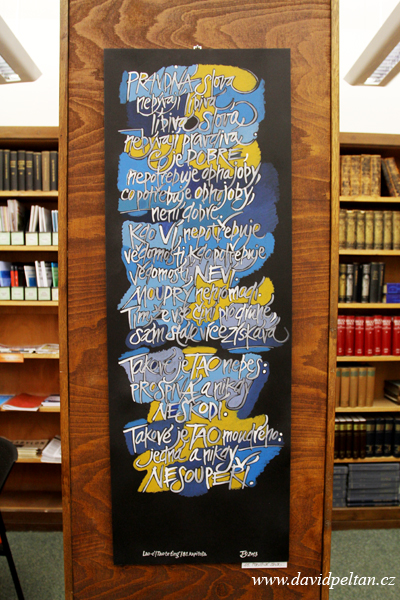 PRAVDIVÁ slova
nebývají libivá,
libivá slova
nebývají pravdivá.
Co je DOBRÉ,
nepotřebuje obhajoby,
co potřebuje obhajoby,
není dobré.
Kdo VÍ, nepotřebuje
vědomosti, kdo potřebuje
vědomosti, NEVÍ.
MOUDRÝ nehromadí.
Tím, že vše činí pro druhé,
sám však více získává
Takové je TAO nebes:
PROSPÍVÁ a nikdy
NEŠKODÍ.
Takové je TAO moudrého:
jedná a nikdy
NESOUPEŘÍ.
Lao-c' / Tao te ťing / 81. kapitola
2013
www.davidpeltan.cz